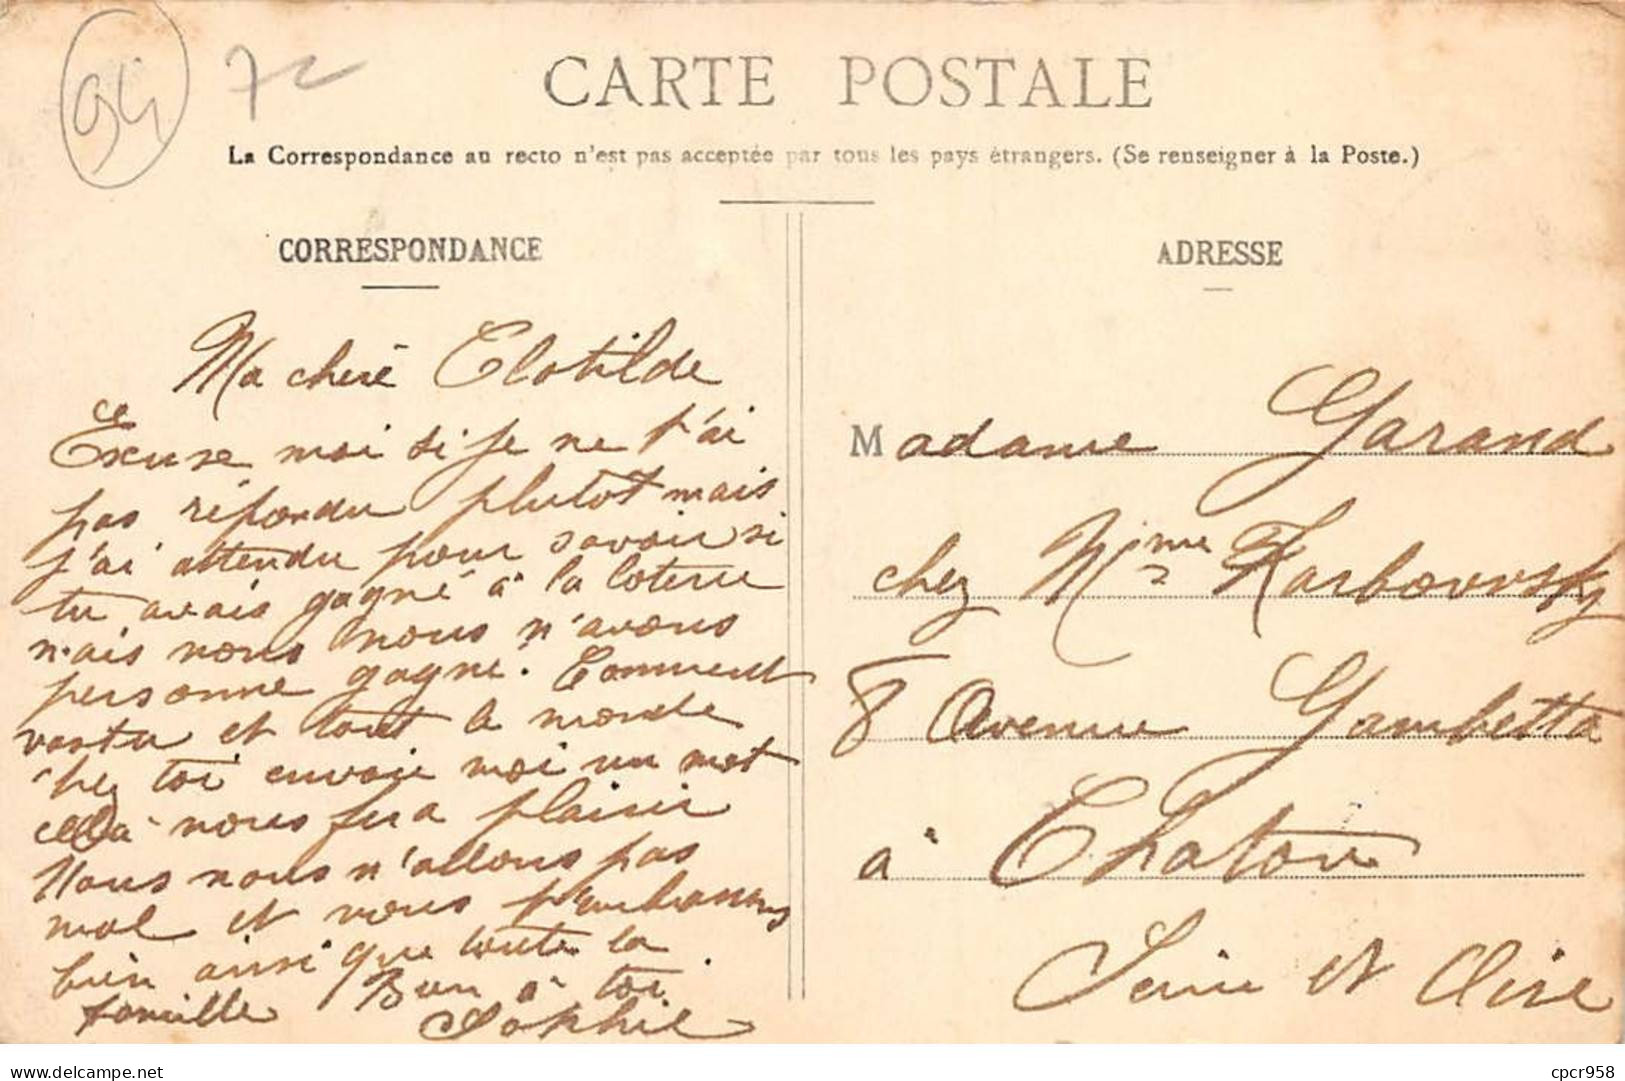 94
CARTE POSTALE
La Correspondance au recto n'est pas acceptée par tous les pays étrangers. (Se renseigner à la Poste.)
CORRESPONDANCE
Ma chere Clotilde
Excuse moi si je ne t'ai
pas répondu plutot mais
j'ai attendu pour savoir si
tu avais gagné à la loterie
mais nous nous n'avons
personne gagné. Comment
vastu et tout le monde
chez toi envoie moi un mot
cela nous fera plaisir
Nous nous n'allons pas
mal et nous t'embrassons
bien ainsi que toute la
famille Bon à toi.
Sophie
ADRESSE
Madame Garand
chez Mme Karbovvsky
8 Avenue Gambetta
à Chatou
Seine et Oise
cpcr958